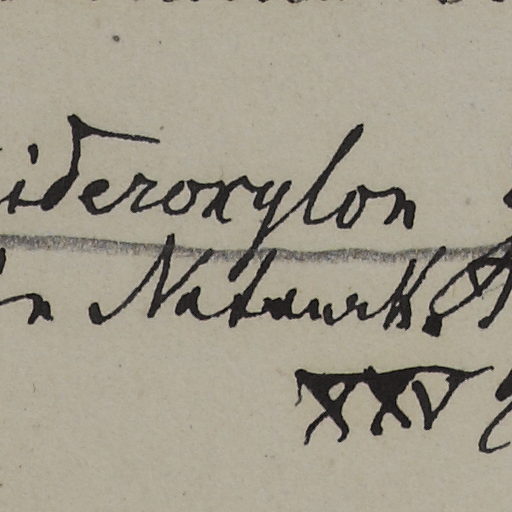 ideroxylon
in Natuurk.
XXV